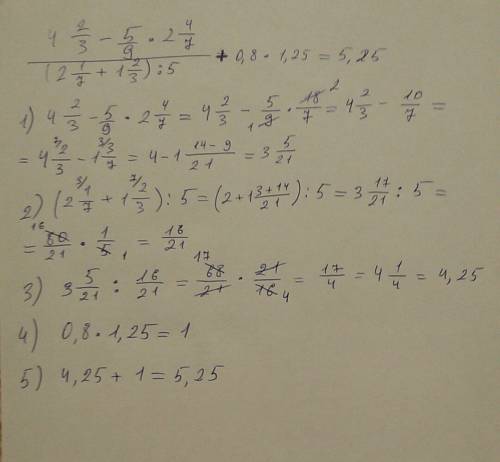 4 2/3 − 5/9 · 2 4/7
(2 1/7 + 1 2/3) : 5 + 0,8 · 1,25 = 5,25
1) 4 2/3 − 5/9 · 2 4/7 = 4 2/3 − 5/9 1 · 18/7 2 = 4 2/3 − 10/7 =
= 4 7/ 2/3 − 1 3/ 3/7 = 4 − 1 14−9/21 = 3 5/21
2) (2 3/ 1/7 + 1 7/ 2/3) : 5 = (2+1 3+14/21) : 5 = 3 17/21 : 5 =
= 16 80/21 · 1/5 1 = 16/21
3) 3 5/21 : 16/21 = 17 68/21 · 21/16 4 = 17/4 = 4 1/4 = 4,25
4) 0,8 · 1,25 = 1
5) 4,25 + 1 = 5,25